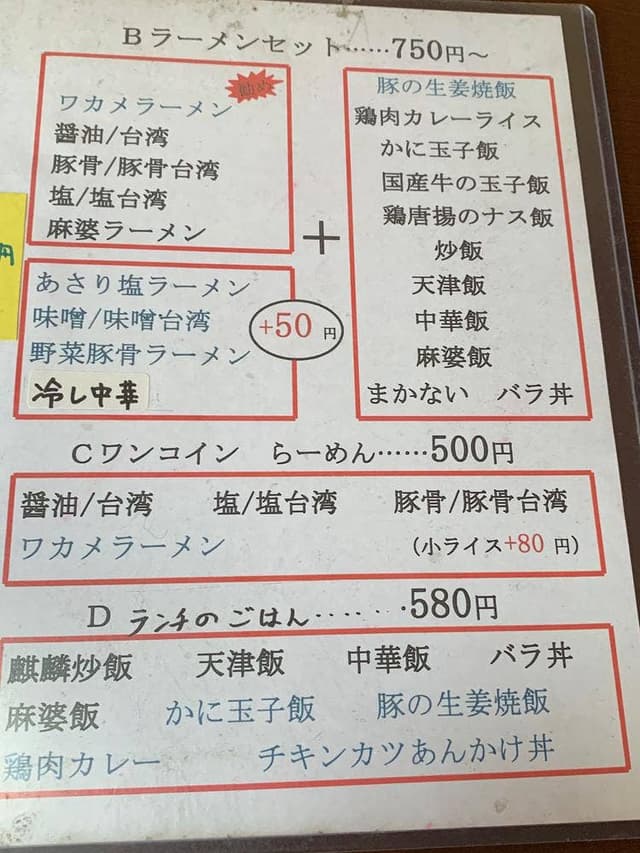 Bラーメンセット……750円～
ワカメラーメン
醤油/台湾
豚骨/豚骨台湾
塩/塩台湾
麻婆ラーメン
あさり塩ラーメン
味噌/味噌台湾
野菜豚骨ラーメン
冷し中華
+50 円
+
豚の生姜焼飯
鶏肉カレーライス
かに玉子飯
国産牛の玉子飯
鶏唐揚のナス飯
炒飯
天津飯
中華飯
麻婆飯
まかない バラ丼
円
Cワンコイン らーめん……500円
醤油/台湾 塩/塩台湾 豚骨/豚骨台湾
ワカメラーメン (小ライス+80 円)
D ランチのごはん……580円
麒麟炒飯 天津飯 中華飯 バラ丼
麻婆飯 かに玉子飯 豚の生姜焼飯
鶏肉カレー チキンカツあんかけ丼